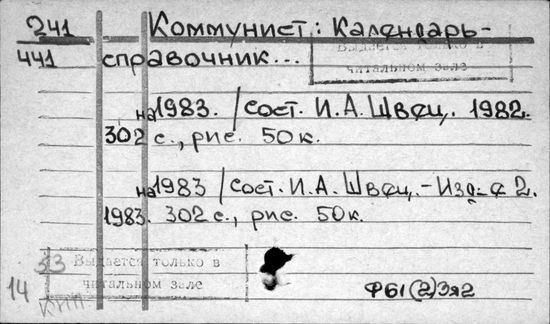 241 Коммунист.: Календарь-
441 справочник...
Выдается только в
читальном зале
на 1983. / Сост. И.А. Швец. 1982.
302 с., рис. 50 к.
на 1983 / Сост. И.А. Швец. - Изд-е 2.
1983. 302 с., рис. 50 к.
53 Выдается только в
14 читальном зале
Ф61(2)3я2